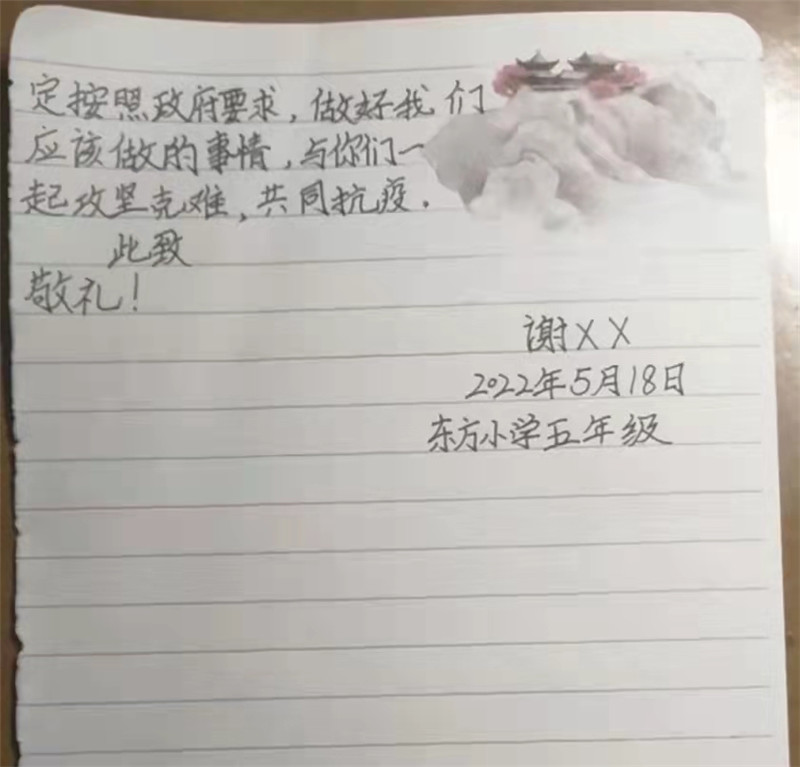 定按照政府要求，做好我们
应该做的事情，与你们一
起攻坚克难，共同抗疫.
此致
敬礼！
谢XX
2022年5月18日
东方小学五年级